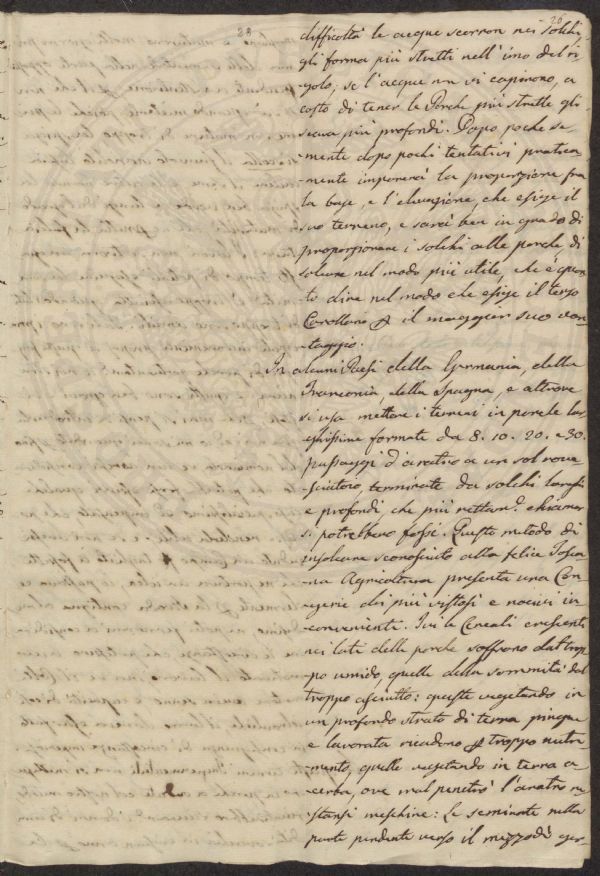 23
26
difficoltà le acque scorron nei solchi,
gli forma più stretti nell'imo del ri
golo, se l'acque nn vi capirono, a
costo di tener le Porche più strette gli
scava più profondi. Dopo poche se
mente dopo pochi tentativi pratica
mente imparerà la proporzione fra
la base, e l'elevazione, che esige il
suo terreno, e sarà ben in grado di
proporzionare i solchi alle porche, di
solcare nel modo più utile, che è quan
to dire nel modo che esige il terzo
Corollario il maggior suo van
taggio.
In alcuni Paesi della Germania, della
Franconia, della Spagna, e altrove
si usa mettere i terreni in porche lar
ghissime formate da 8. 10. 20. e 30.
passaggi d'aratro a un sol rove
sciatoio, terminate da solchi larghi
e profondi che più nettam.e chiamar
si potrebbero fossi. Questo metodo di
insolcare sconosciuto alla felice Tosca
na Agricoltura presenta una Con
gerie dei più vistosi e nocivi in
convenienti. Ivi le Cereali crescenti
nei lati delle porche soffrono dal trop
po umido, quelle della sommità dal
troppo asciutto: queste vegetando in
un profondo strato di terra pingue
e lavorata ricadono troppo nutri
mento, quelle vegetando in terra a
cerba, ove mal penetrò l'aratro re
stansi meschine: Le seminate nella
parte pendente verso il mezzodì